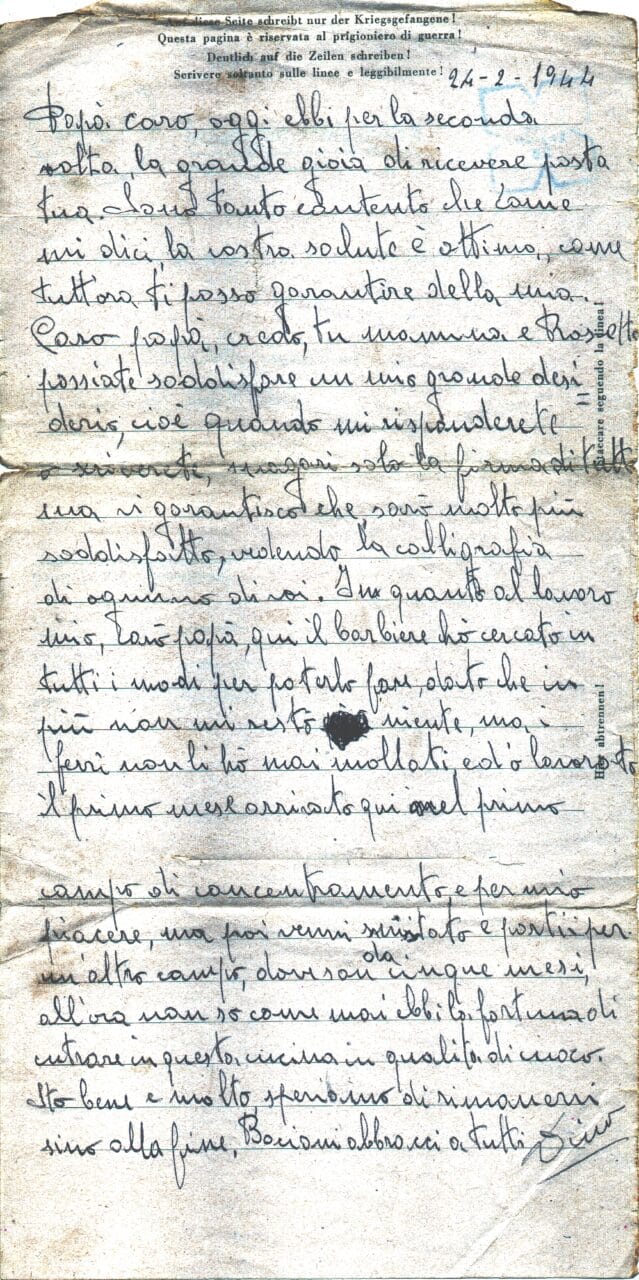 Auf diese Seite schreibt nur der Kriegsgefangene!
Questa pagina è riservata al prigioniero di guerra!
Deutlich auf die Zeilen schreiben!
Scrivere soltanto sulle linee e leggibilmente!
24-2-1944
Papà caro, oggi ebbi per la seconda
volta, la grande gioia di ricevere posta
tua. Sono tanto contento che come
mi dici la vostra salute è ottima, come
tutt'ora ti posso garantire della mia.
Caro papà, credo, tu mamma e
possiate soddisfare un mio grande desi
derio, cioè quando mi risponderete
o scriverete, magari solo la firma di tutti
ma vi garantisco che sarò molto più
soddisfatto, vedendo la calligrafia
di ognuno di voi. In quanto al lavoro
mio, caro papà, qui il barbiere hò cercato in
tutti i modi per poterlo fare, dato che in
più non mi resto niente, ma i
ferri non li hò mai mollati, ed ò lavorato
il primo mese arrivato qui nel primo
campo di concentramento e per mio
piacere, ma poi venni e partii per
un'altro campo, dove son da cinque mesi,
all'ora non so come mai ebbi la fortuna di
entrare in questa cucina in qualità di cuoco.
Sto bene e molto, speriamo di rimanervi
sino alla fine. Bacioni abbracci a tutti Dino
Staccare seguendo la linea!
Hier abtrennen!